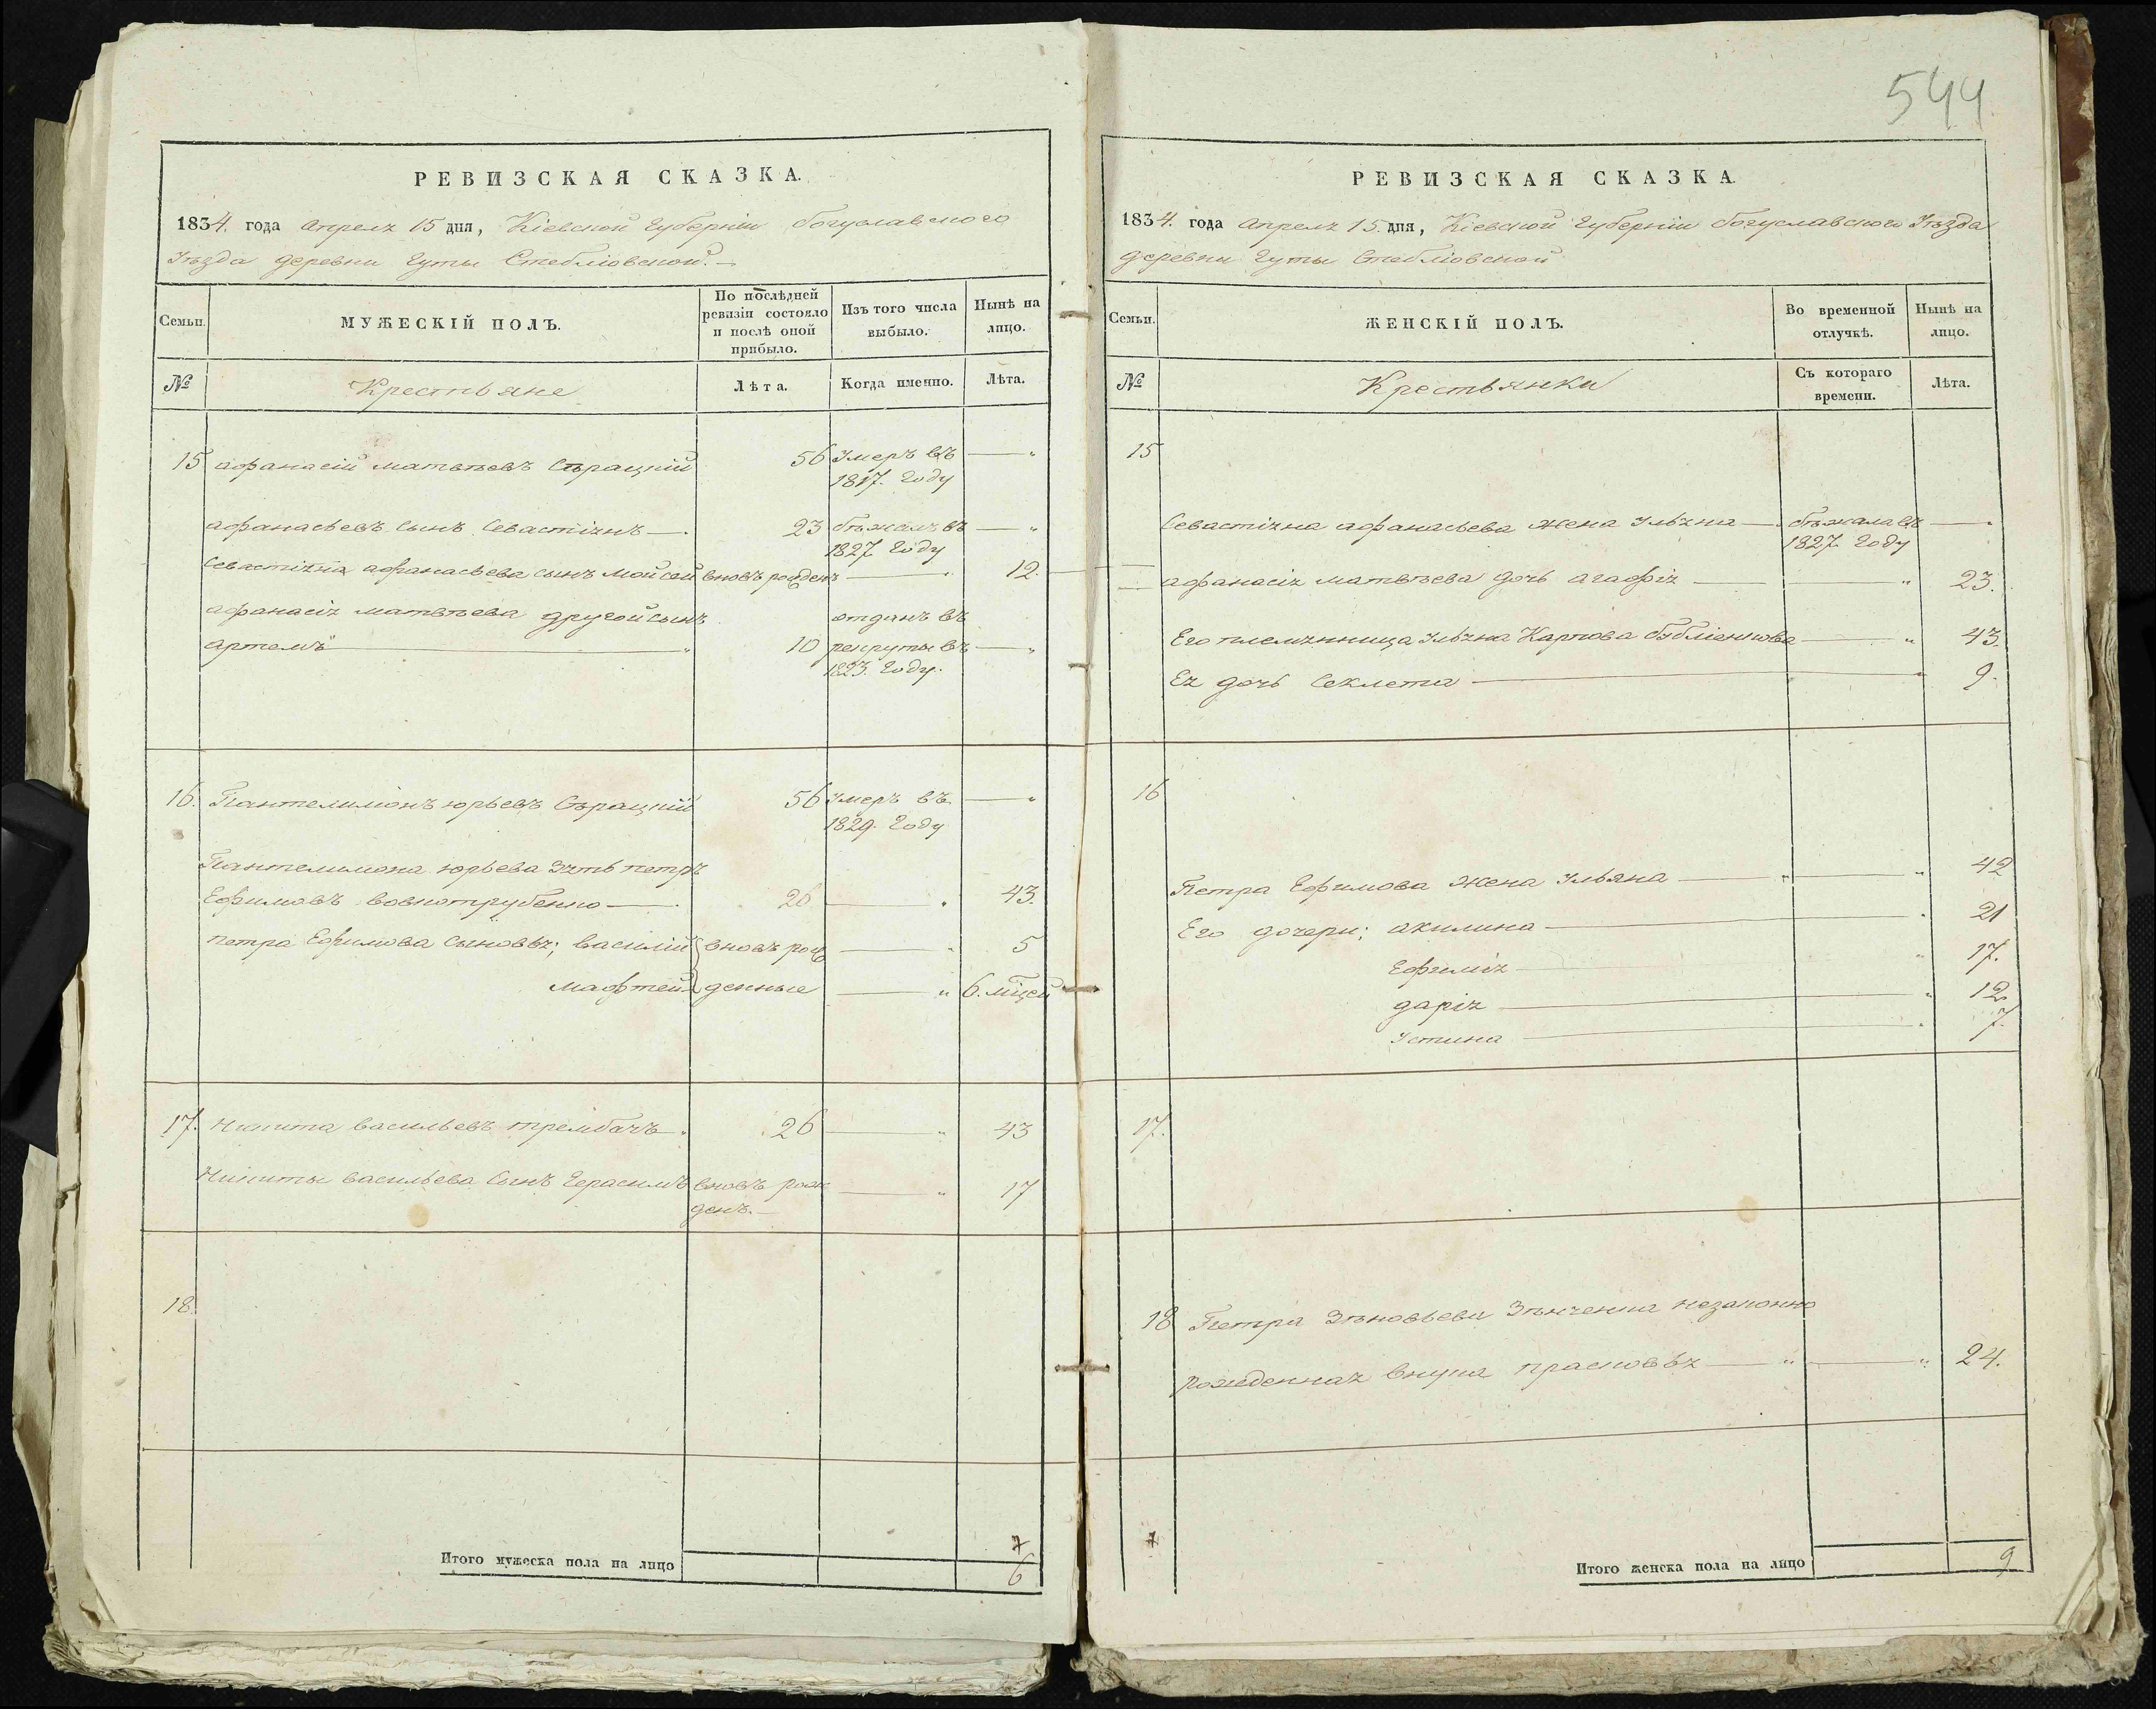 РЕВИЗСКАЯ СКАЗКА.
1834. года Апреля 15 дня, Кіевской Губерніи Богуславского
Уѣзда деревни Гуты Стебліовской.
Семьи.
МУЖЕСКІЙ ПОЛЪ.
По послѣдней ревизіи состояло и послѣ оной прибыло.
Изъ того числа выбыло.
Нынѣ на лицо.
№
Крестьяне
Лѣта.
Когда именно.
Лѣта.
15 афанасій матвѣевъ Сѣрацкій 56 Умеръ въ — „
1817. Году
афанасьевъ Сынъ Севастіянъ — 23 бѣжалъ въ — „
1827. Году
Севастіяна афанасьева сынъ Мойсей вновь рожденъ — 12.
афанасія матвѣева другой сынъ отданъ въ
артемъ — „ 10 рекруты въ — „
1823. Году.
16. Пантелимонъ юрьевъ Сѣрацкій 56 Умеръ въ — „
1829. Году
Пантелимона юрьева Зять петръ
Ефимовъ вовкотрубенко — 26 — „ 43.
петра Ефимова Сыновья; василій вновь рож — „ 5
Мафтей денные — „ 6. мцей
17. Никита васильевъ трембачъ „ 26 — „ 43
Никиты васильева Сынъ Герасимъ вновь рож — „ 17
денъ. —
18.
7
Итого мужеска пола на лицо 6
544
РЕВИЗСКАЯ СКАЗКА.
1834. года Апреля 15. дня, Кіевской Губерніи Богуславского Уѣзда
деревни Гуты Стебліовской
Семьи.
ЖЕНСКІЙ ПОЛЪ.
Во временной отлучкѣ.
Нынѣ на лицо.
№
Крестьянки
Съ котораго времени.
Лѣта.
15
Севастіяна афанасьева жена Ульяна — бѣжала въ — „
1827. Году
афанасія матвѣева дочь агафія — „ 23.
Его племянница Ульяна Карпова — „ 43.
Ея дочь Секлета — „ 9.
16
Петра Ефимова жена Ульяна — „ — „ 42
Его дочери; акилина — „ 21
Ефимія — „ 17.
дарія — „ 12
Устина — „ 7.
17.
18 Петра Зѣновьева Зѣнченка незаконно
рожденная внука прасковья — „ — „ 24.
Итого женска пола на лицо 9